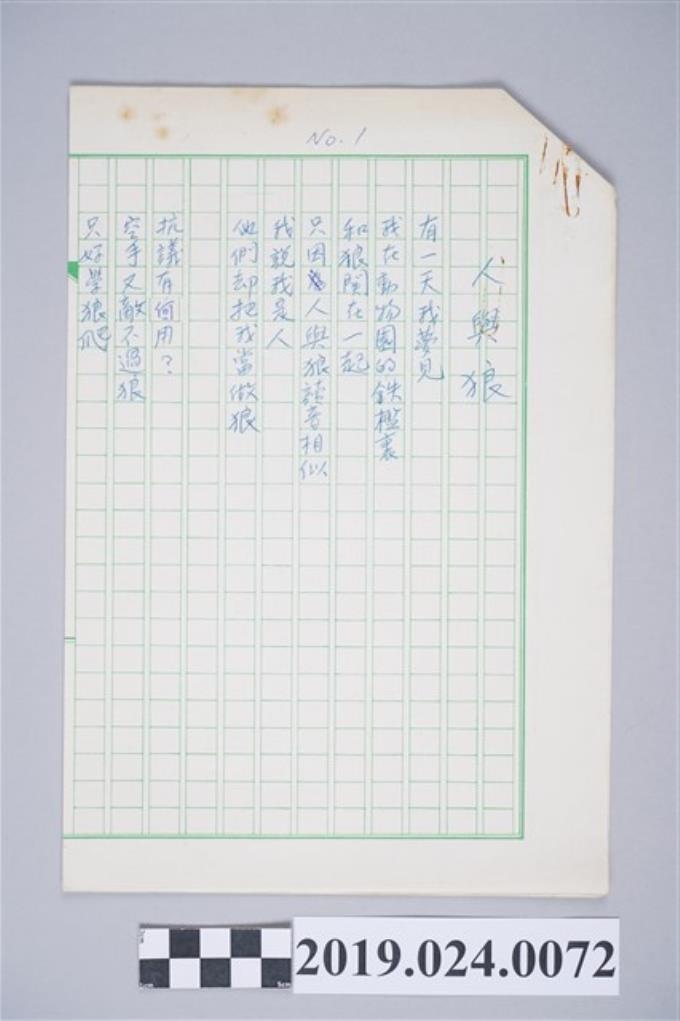 No. 1
人與狼
有一天我夢見
我在動物園的鉄檻裏
和狼関在一起
只因人與狼讀音相似
我説我是人
他們却把我當做狼
抗議有何用？
空手又敵不過狼
只好學狼爬
2019.024.0072